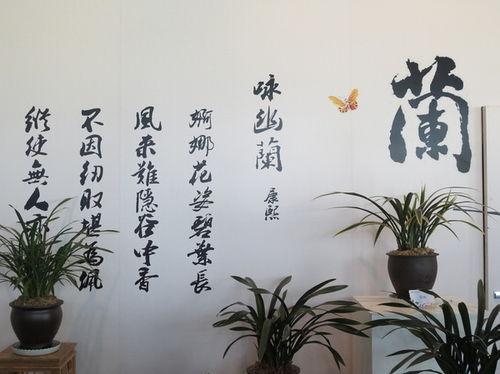 蘭
咏幽蘭
康熙
婀娜花姿碧葉長
風来難隱谷中香
不因紉取堪為珮
縱使無人亦